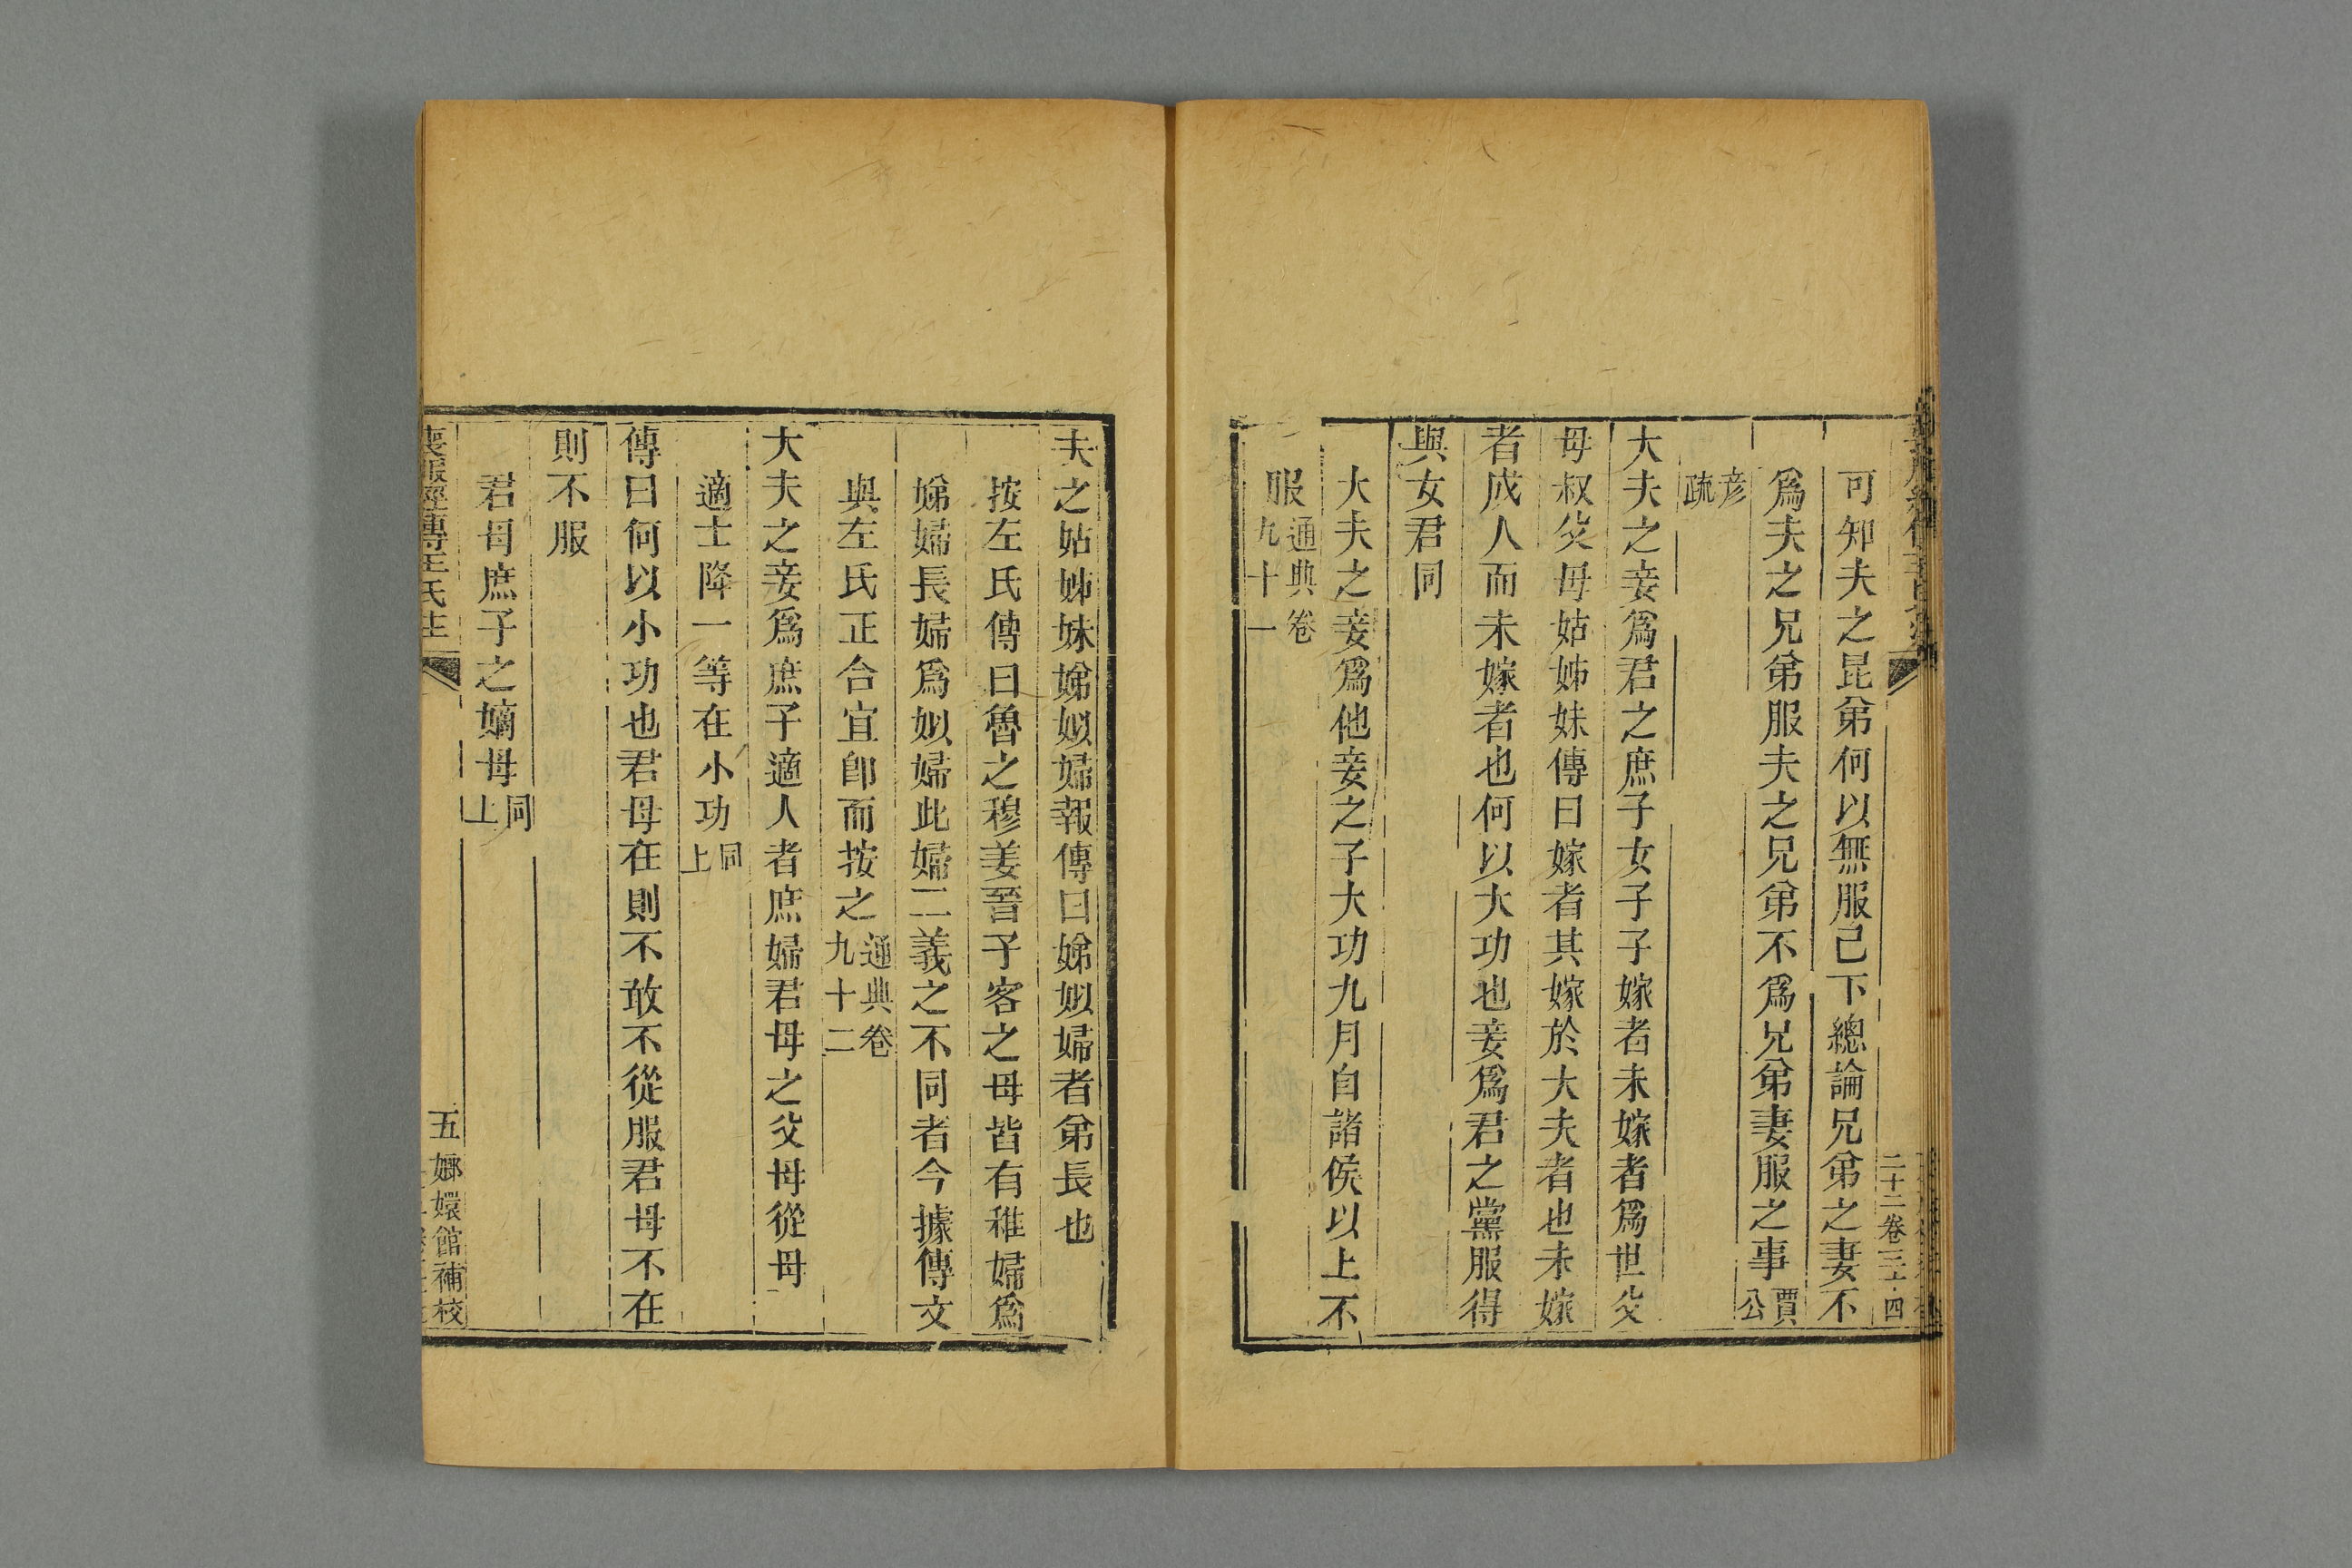 可知夫之昆弟何以無服己下總論兄弟之妻不
爲夫之兄弟服夫之兄弟不爲兄弟妻服之事賈公
彦疏
大夫之妾爲君之庶子女子子嫁者未嫁者爲世父
母叔父母姑姊妹傳曰嫁者其嫁於大夫者也未嫁
者成人而未嫁者也何以大功也妾爲君之黨服得
與女君同
大夫之妾爲他妾之子大功九月自諸侯以上不
服通典卷九十一
夫之姑姊妹娣姒婦報傳曰娣姒婦者弟長也
按左氏傳曰魯之穆姜晉子容之母皆有稚婦爲
娣婦長婦爲姒婦此婦二義之不同者今據傳文
與左氏正合宜卽而按之通典卷九十二
大夫之妾爲庶子適人者庶婦君母之父母從母
適士降一等在小功同上
傳曰何以小功也君母在則不敢不從服君母不在
則不服
君母庶子之嫡母同上
喪服經傳王氏注
五
嫏嬛館補校